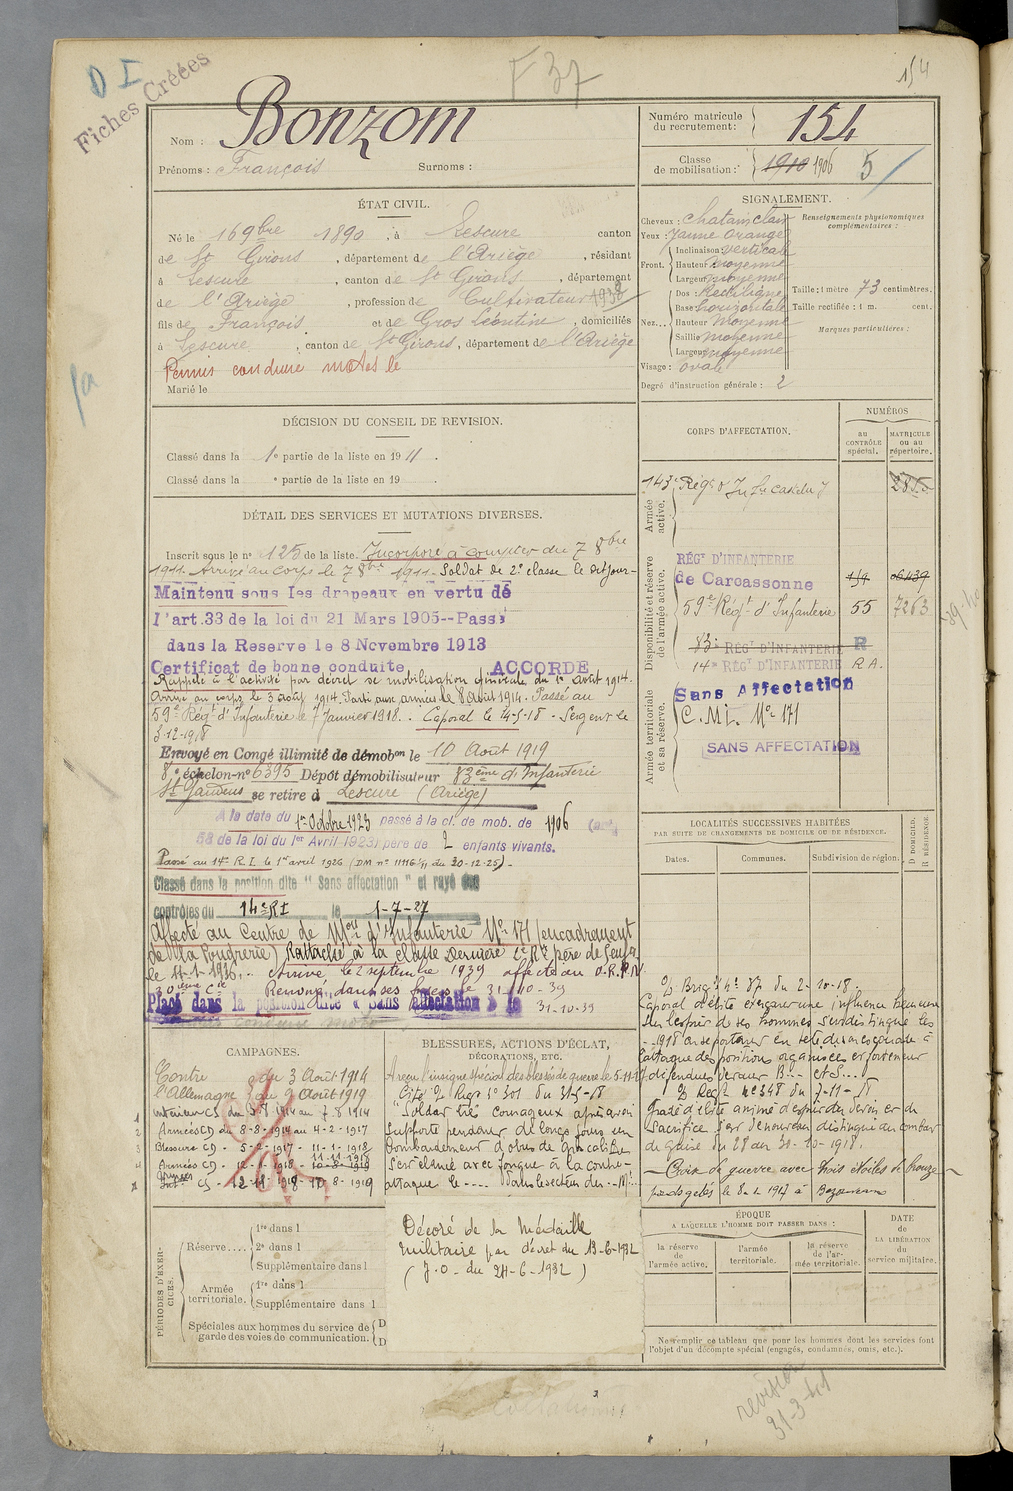 D I
Fiches Créées
F 37
154
Nom : Bonzom
Prénoms : François Surnoms :
Numéro matricule du recrutement: 154
Classe de mobilisation : 1910 1906 5
ÉTAT CIVIL.
Né le 16 9bre 1890, à Lescure canton
de St Girons, département de l'Ariège, résidant
à Lescure, canton de St Girons, département
de l'Ariège, profession de Cultivateur 1938
fils de François et de Gros Léontine, domiciliés
à Lescure, canton de St Girons, département de l'Ariège
Permis conduire motos le
Marié le
SIGNALEMENT.
Cheveux : chatain clair
Yeux : Jaune orange
Front. Inclinaison verticale
Hauteur moyenne
Largeur moyenne
Nez... Dos : Rectiligne
Base horizontale
Hauteur moyenne
Saillie moyenne
Largeur moyenne
Visage : ovale
Degré d'instruction générale : 2
Renseignements physionomiques complémentaires :
Taille : 1 mètre 73 centimètres.
Taille rectifiée : 1 m. cent.
Marques particulières :
DÉCISION DU CONSEIL DE REVISION.
Classé dans la 1e partie de la liste en 1911.
Classé dans la e partie de la liste en 19 .
DÉTAIL DES SERVICES ET MUTATIONS DIVERSES.
Inscrit sous le no 125 de la liste. Incorporé à compter du 7 8bre
1911. Arrivé au corps le 7 8bre 1911. Soldat de 2e classe le dit jour
Maintenu sous les drapeaux en vertu de
l'art.33 de la loi du 21 Mars 1905--Passé
dans la Reserve le 8 Novembre 1913
Certificat de bonne conduite ACCORDE
Rappelé à l'activité par décret de mobilisation générale du 1er août 1914.
Arrivé au corps le 3 août 1914. Parti aux armées le 8 août 1914. Passé au
59e Régt d'Infanterie le 7 Janvier 1918. Caporal le 14-5-18 - Sergent le
3-12-1918
Envoyé en Congé illimité de démobon le 10 Août 1919
8e échelon-no 6395 Dépôt démobilisateur 83ème d'Infanterie
St Gaudens se retire à Lescure (Ariège)
A la date du 1er Octobre 1923 passé à la cl. de mob. de 1906 (art.
58 de la loi du 1er Avril 1923) père de 2 enfants vivants.
Passé au 14e R.I. le 1er avril 1926 (DM no 11116 1/1 du 20-12-25)
Classé dans la position dite "Sans affectation" et rayé des
contrôles du 14e RI le 1-7-27
Affecté au Centre de d'Infanterie No 171 (encadrement
de la Poudrerie) Rattaché à la classe dernière 2e Rve père de
le Arrivé le 2 septembre 1939 affecté au
30ième Cie Renvoyé dans ses foyers le 31-10-39
Placé dans la position dite « Sans affectation » le 31-10-39
CORPS D'AFFECTATION.
NUMÉROS
au CONTRÔLE spécial.
MATRICULE ou au répertoire.
Armée active.
143e Régt d'Infrie 2855
Disponibilité et réserve de l'armée active.
RÉGt D'INFANTERIE
de Carcassonne 154 06439
59e Régt d'Infanterie 55 7263
83e RÉGt D'INFANTERIE R
14e RÉGt D'INFANTERIE R.A.
Armée territoriale et sa réserve.
Sans Affectation
C. M. I. No 171
SANS AFFECTATION
LOCALITÉS SUCCESSIVES HABITÉES
PAR SUITE DE CHANGEMENTS DE DOMICILE OU DE RÉSIDENCE.
Dates. Communes. Subdivision de région.
D DOMICILE. R RÉSIDENCE
CAMPAGNES.
Contre du 3 Août 1914
l'Allemagne au 9 Août 1919
Intérieur CS du 3-8-1914 au 7-8-1914
Armées CD du 8-8-1914 au 4-2-1917
Blessure CD - 5-2-1917 - 11-1-1918
Armées CD - 12-1-1918 11-11-1918 10-8-1919
CS - 12-11-1918 - 10-8-1919
BLESSURES, ACTIONS D'ÉCLAT, DÉCORATIONS, ETC.
A reçu l'insigne spécial des blessés de guerre le 5-11-17
Cité O/ Régt No 301 du 31-5-18
"Soldat très courageux après avoir
supporté pendant de longs jours un
bombardement d'obus de gros calibre
s'est élancé avec fougue à la contre-
attaque le ---- Dans le secteur de
O/ Brig. No 87 du 2-10-18
Caporal d'élite exerçant une influence heureuse
sur l'esprit de ses hommes. S'est distingué les
1918 en se portant en tête de son escouade à
l'attaque des positions organisées et fortement
défendues devant B... et S...
O/ Régt No 348 du 7-11-18
Gradé d'élite animé d'esprit de devoir et de
sacrifice s'est de nouveau distingué au combat
de Guise du 28 au 31-10-1918.
— Croix de guerre avec trois étoiles de bronze —
pieds gelés le 8-2-1917 à
Décoré de la Médaille
militaire par décret du 13-6-1932
(J.O. du 24-6-1932)
PÉRIODES D'EXERCICES.
Réserve.... 1re dans l
2e dans l
Supplémentaire dans l
Armée territoriale. 1re dans l
Supplémentaire dans l
Spéciales aux hommes du service de garde des voies de communication. D
D
ÉPOQUE
A LAQUELLE L'HOMME DOIT PASSER DANS :
la réserve de l'armée active.
l'armée territoriale.
la réserve de l'armée territoriale.
DATE de LA LIBÉRATION du service militaire.
Ne remplir ce tableau que pour les hommes dont les services font
l'objet d'un décompte spécial (engagés, condamnés, omis, etc.).
revision
31-3-41